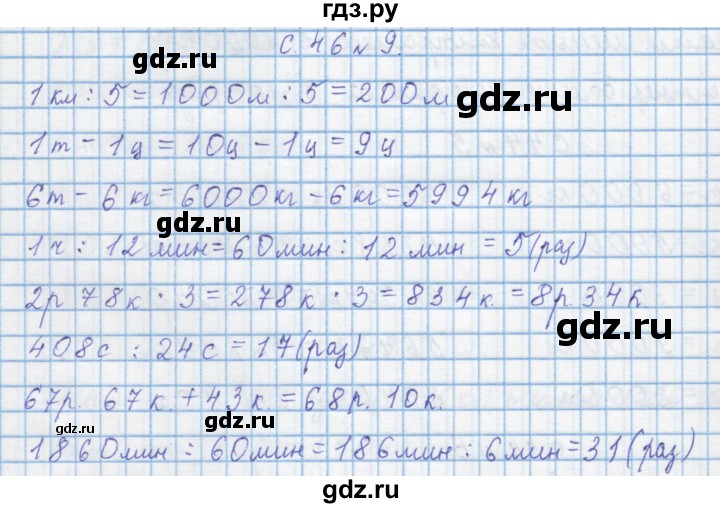 гдз.ру
с. 46 № 9.
gdz.ru gdz.ru
1 км : 5 = 1000м : 5 = 200м
gdz.ru
1т - 1ц = 10ц - 1ц = 9ц
6т - 6 кг = 6000кг - 6кг = 5994кг
gdz.ru gdz.ru
1ч : 12мин = 60мин : 12мин = 5(раз)
2р 78к · 3 = 278к · 3 = 834к. = 8р. 34к.
gdz.ru
408с : 24с = 17(раз)
gdz.ru
67р. 67к. + 43к. = 68р. 10к.
gdz.ru gdz.ru
1860мин : 60мин = 186мин : 6мин = 31(раз)
gdz.ru